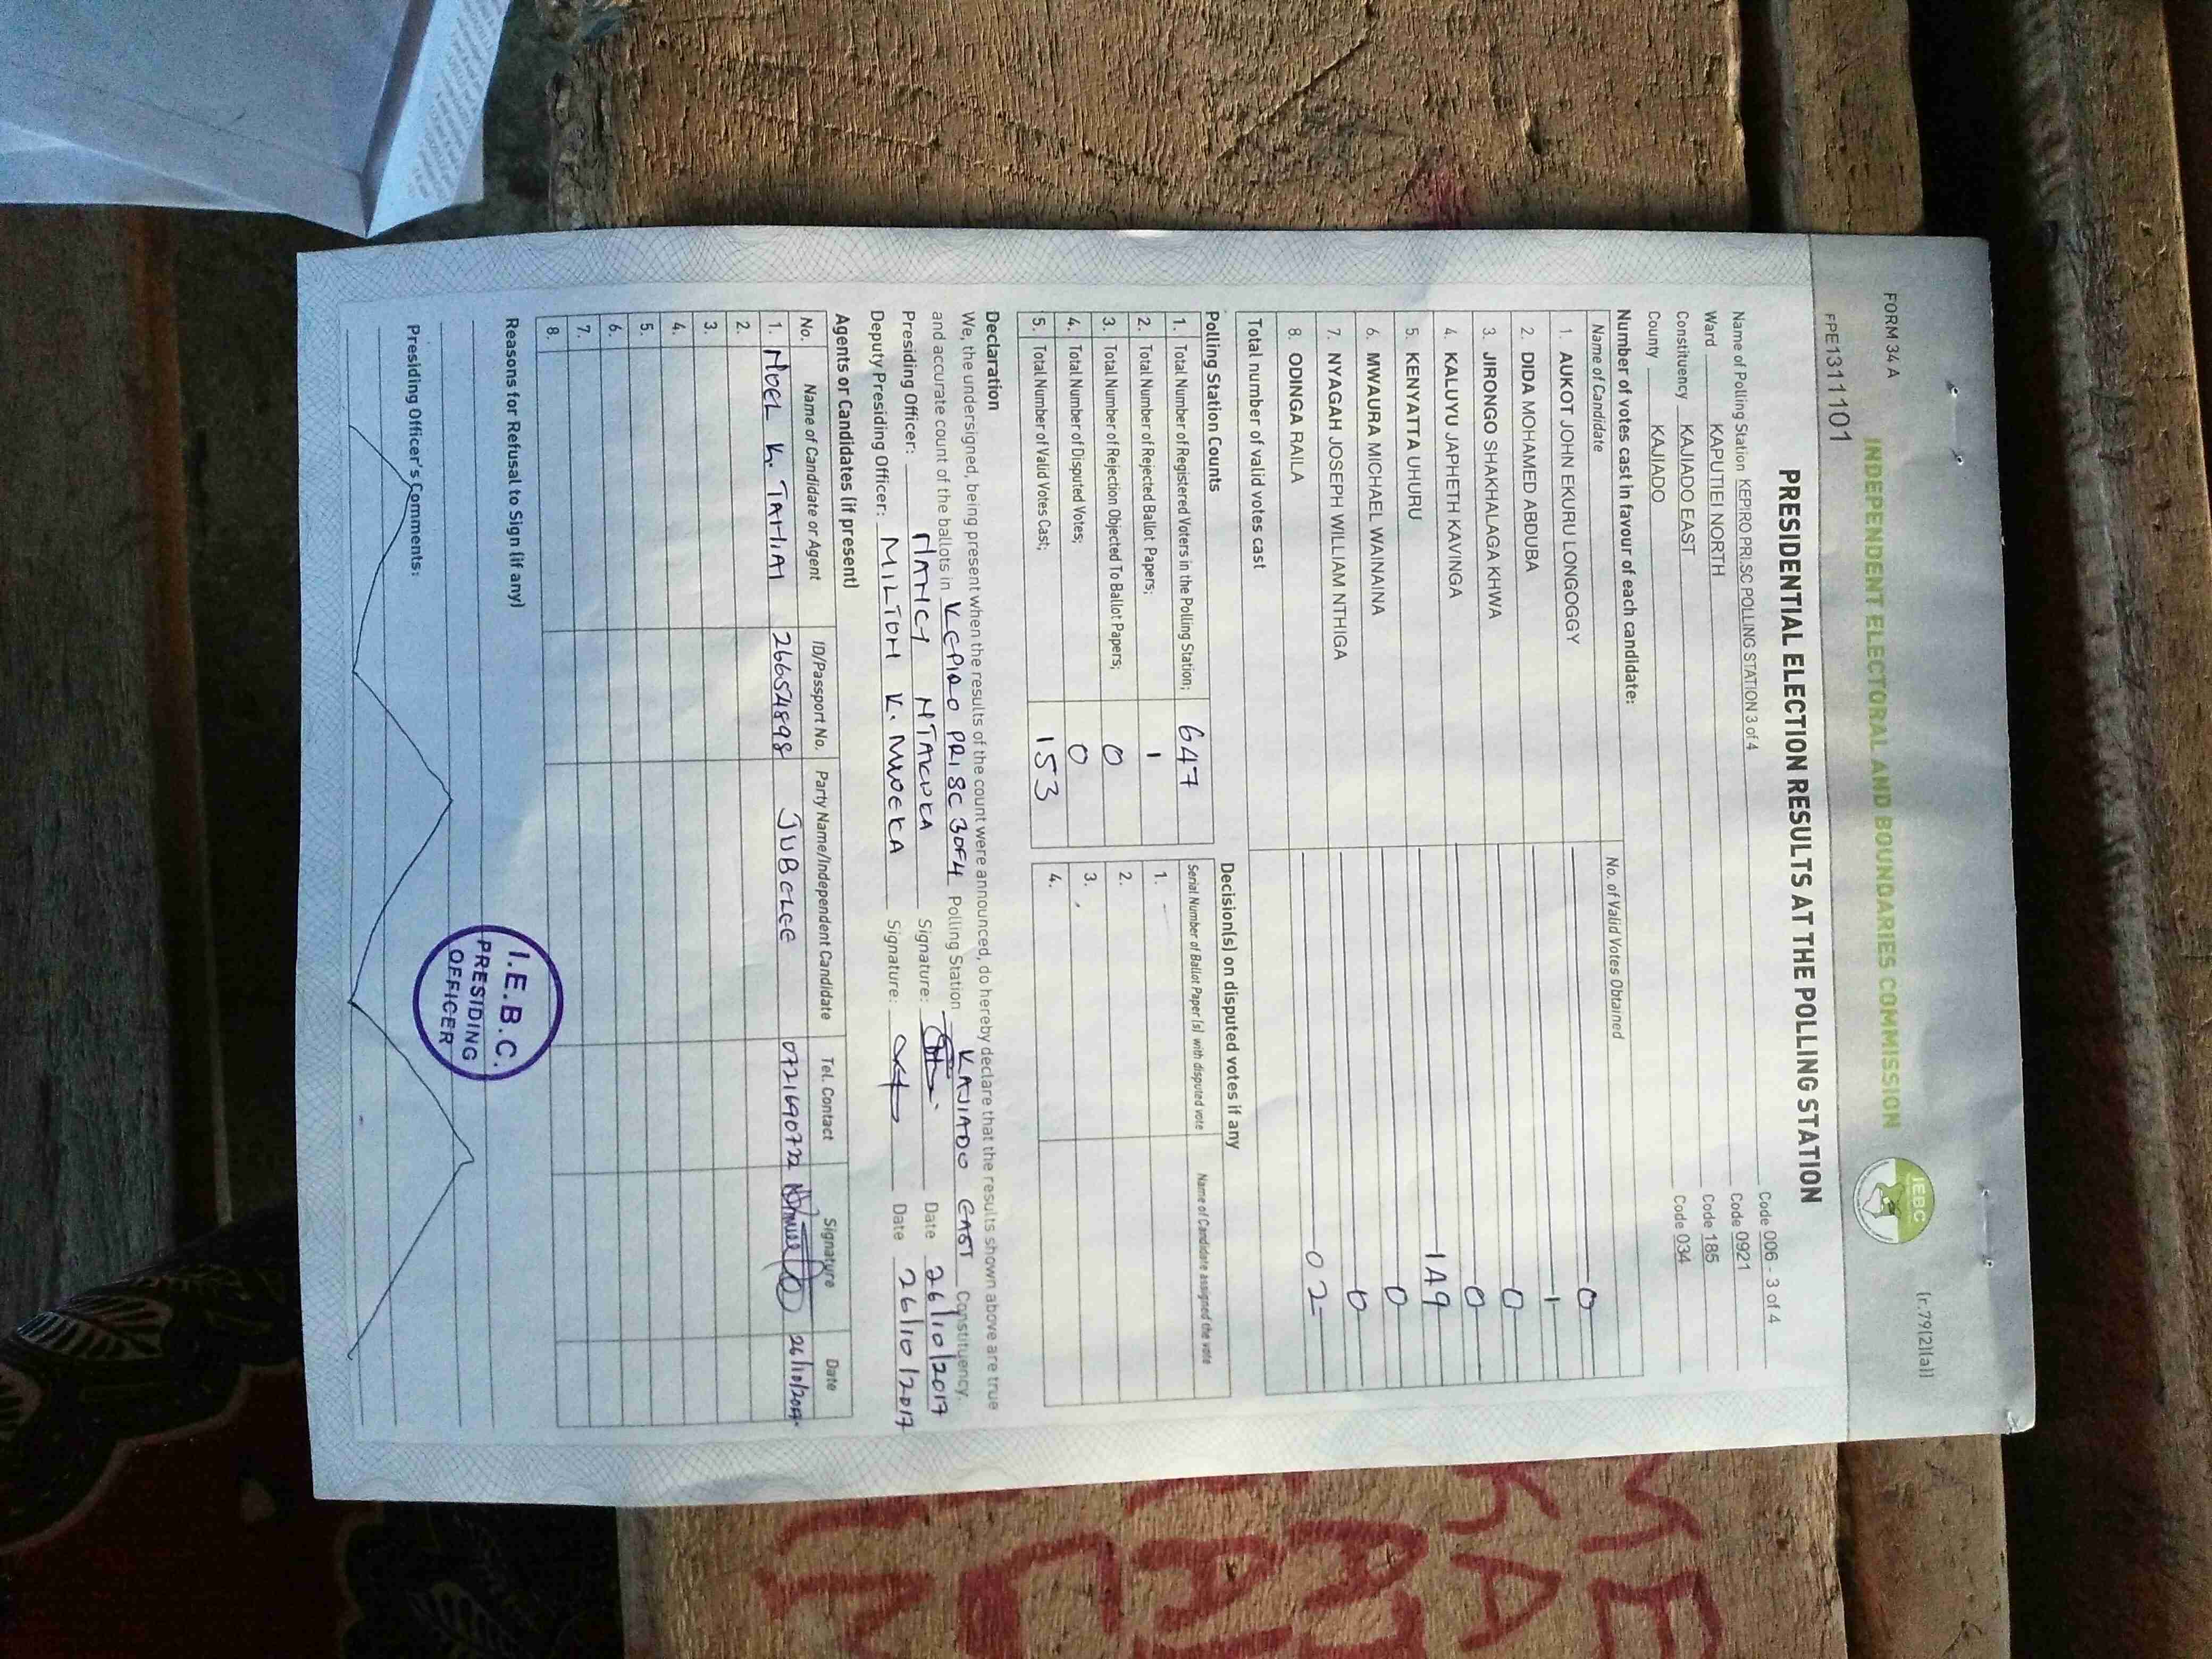 FORM 34 A
(r.79(2)(a))
INDEPENDENT ELECTORAL AND BOUNDARIES COMMISSION
IEBC
FPE1311101
PRESIDENTIAL ELECTION RESULTS AT THE POLLING STATION
Name of Polling Station KEPIRO PRI.SC POLLING STATION 3 of 4 Code 006 - 3 of 4
Ward KAPUTIEI NORTH Code 0921
Constituency KAJIADO EAST Code 185
County KAJIADO Code 034
Number of votes cast in favour of each candidate:
Name of Candidate No. of Valid Votes Obtained
1. AUKOT JOHN EKURU LONGOGGY 0
2. DIDA MOHAMED ABDUBA 1
3. JIRONGO SHAKHALAGA KHWA 0
4. KALUYU JAPHETH KAVINGA 0
5. KENYATTA UHURU 149
6. MWAURA MICHAEL WAINAINA 0
7. NYAGAH JOSEPH WILLIAM NTHIGA 0
8. ODINGA RAILA 02
Total number of valid votes cast
Polling Station Counts
1. Total Number of Registered Voters in the Polling Station; 647
2. Total Number of Rejected Ballot Papers; 1
3. Total Number of Rejection Objected To Ballot Papers; 0
4. Total Number of Disputed Votes; 0
5. Total Number of Valid Votes Cast; 153
Decision(s) on disputed votes if any
Serial Number of Ballot Paper (s) with disputed vote Name of Candidate assigned the vote
1.
2.
3.
4.
Declaration
We, the undersigned, being present when the results of the count were announced, do hereby declare that the results shown above are true
and accurate count of the ballots in KEPIRO PRI SC 3OF4 Polling Station KAJIADO EAST Constituency.
Presiding Officer: NANCY Signature: Date 26/10/2017
Deputy Presiding Officer: MILTON K. MWOKA Signature: Date 26/10/2017
Agents or Candidates (if present)
No. Name of Candidate or Agent ID/Passport No. Party Name/Independent Candidate Tel. Contact Signature Date
1. NOEL K. TAHIAI 26654898 JUBELEE 0721690772 26/10/2017
2.
3.
4.
5.
6.
7.
8.
Reasons for Refusal to Sign (if any)
Presiding Officer's Comments:
I.E.B.C.
PRESIDING
OFFICER